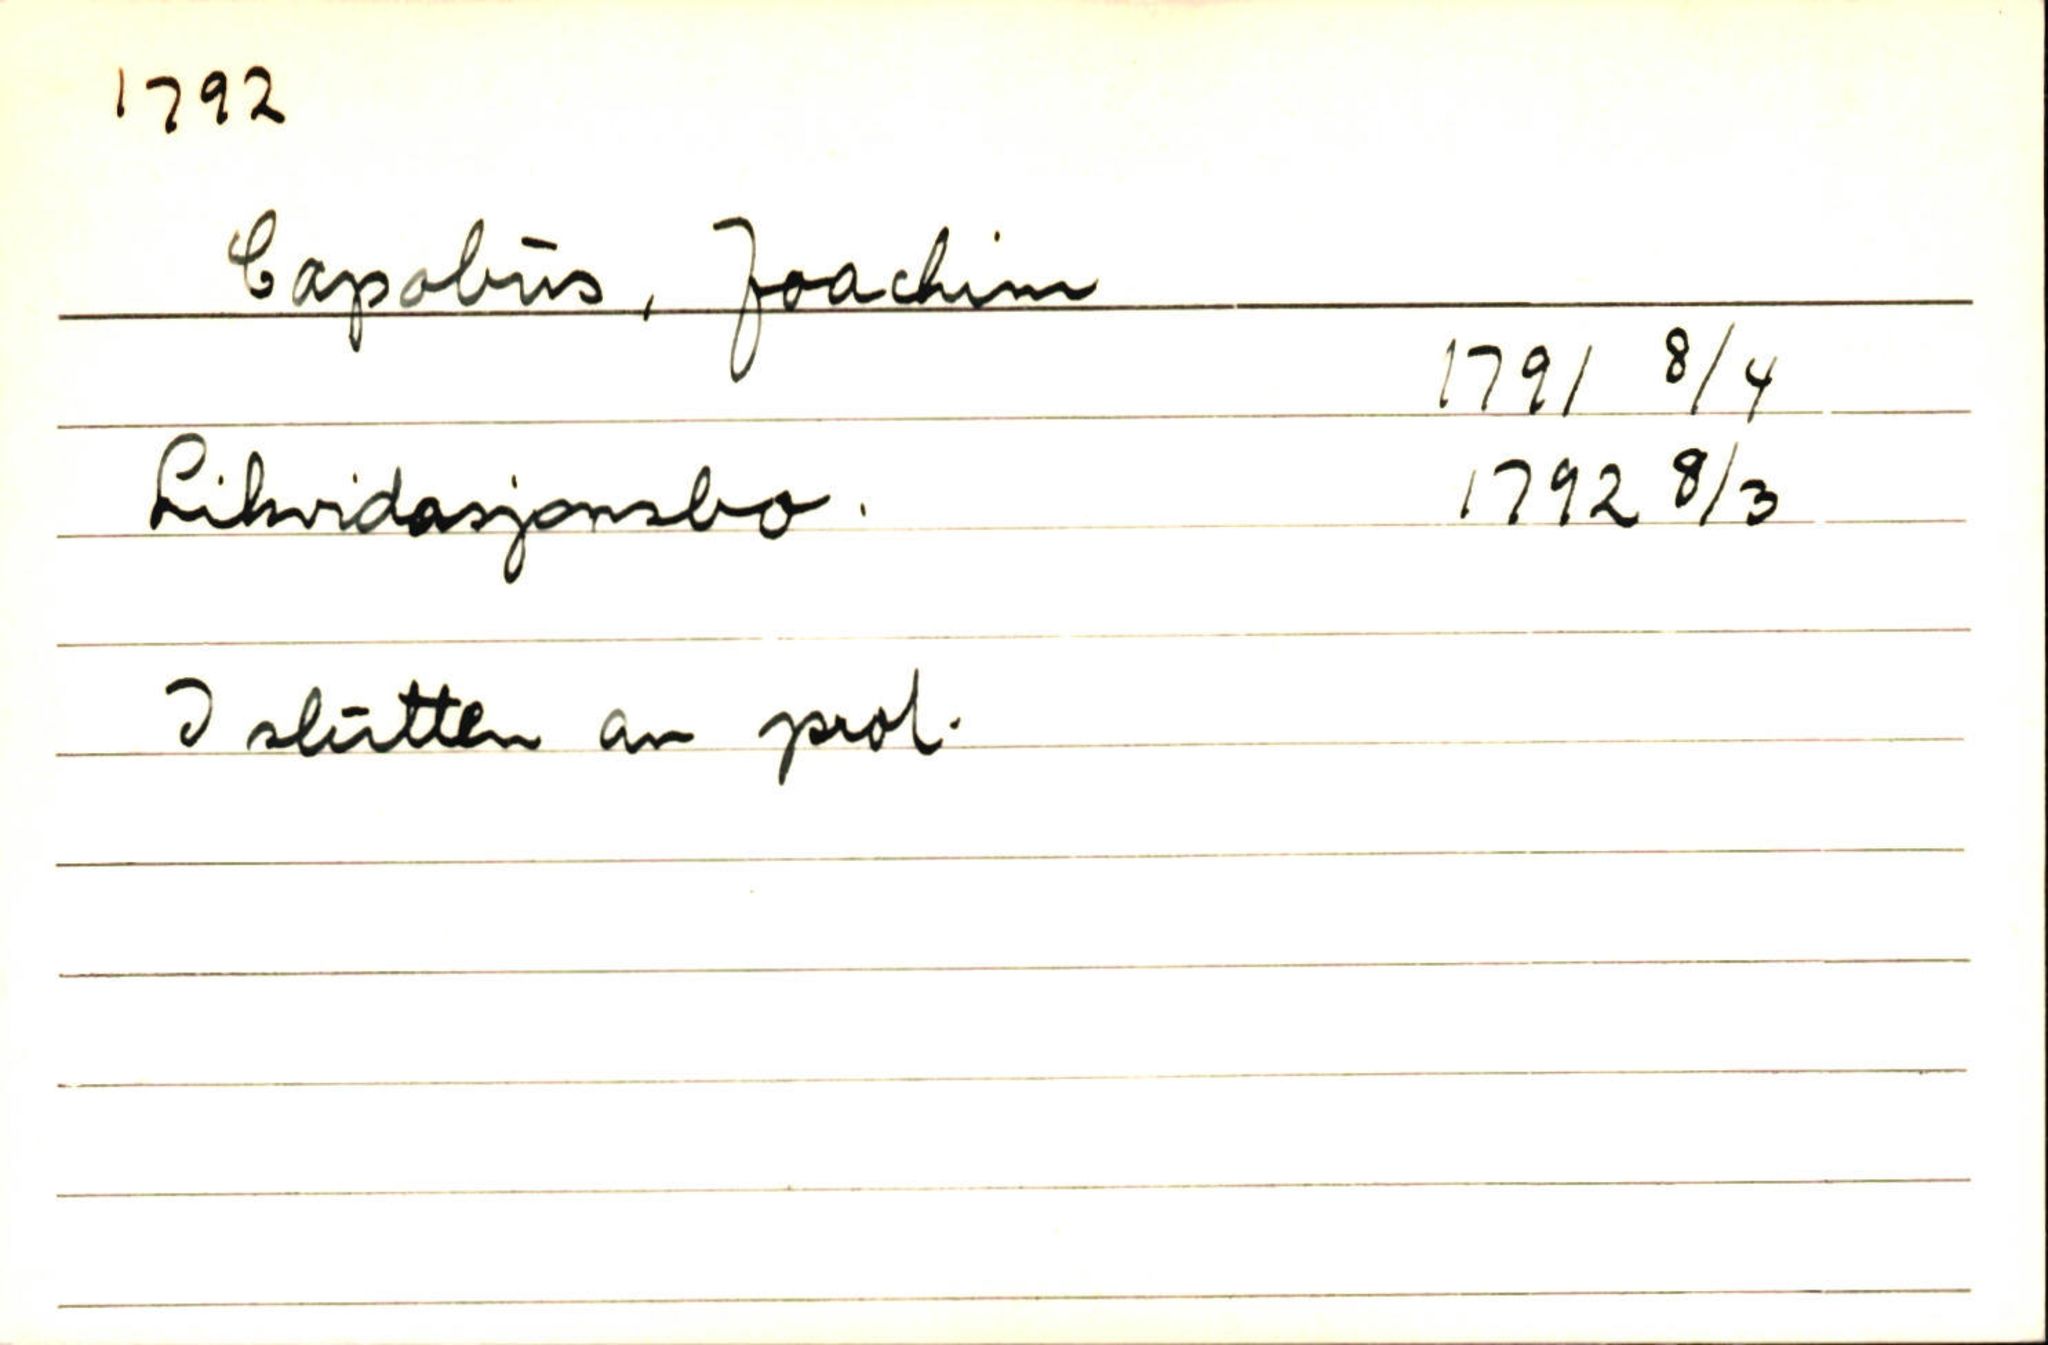 1792
Capobus, Joachim
1791 8/4
Likvidasjonsbo. 1792 8/3
I slutten av prot.